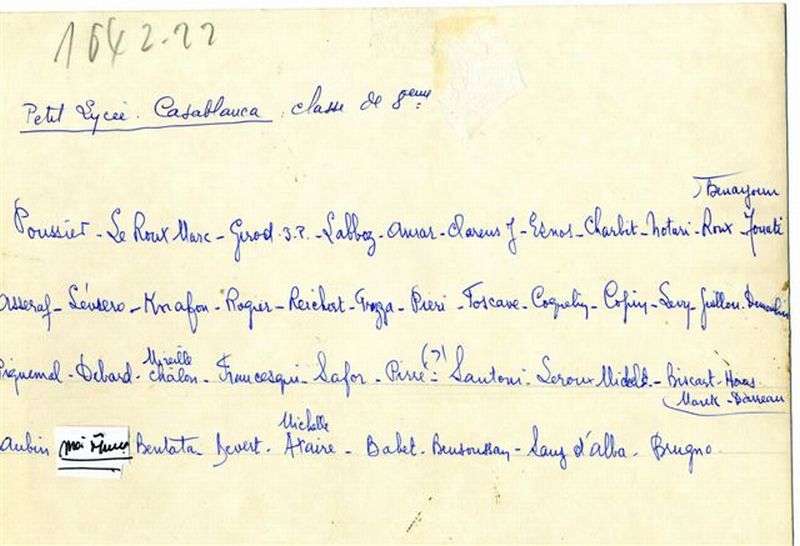 1642-22
Petit Lycée. Casablanca. classe de 8eme
Benayoun
Poussier - Le Roux Marc - Girod J.P. - Labboz - Amar - Clarens J - Esnos - Charbit - Notari - Roux - Touati
Asseraf - Knafou - Rogier - Reichert - Pieri - Toscane - Coquelin - Copin - Levy - Guillou - Demoulin
Mireille
Piquemal - Debard - Chalon - Francesqui - Safor - Pirre (?) - Santoni - Leroux Michele - Biscart - Horas
Marek - Darreau
Michelle
Aubin moi même Bentata - Bevert - Axaire - Babet - Bensoussan - Sanz d'alba - Brugno